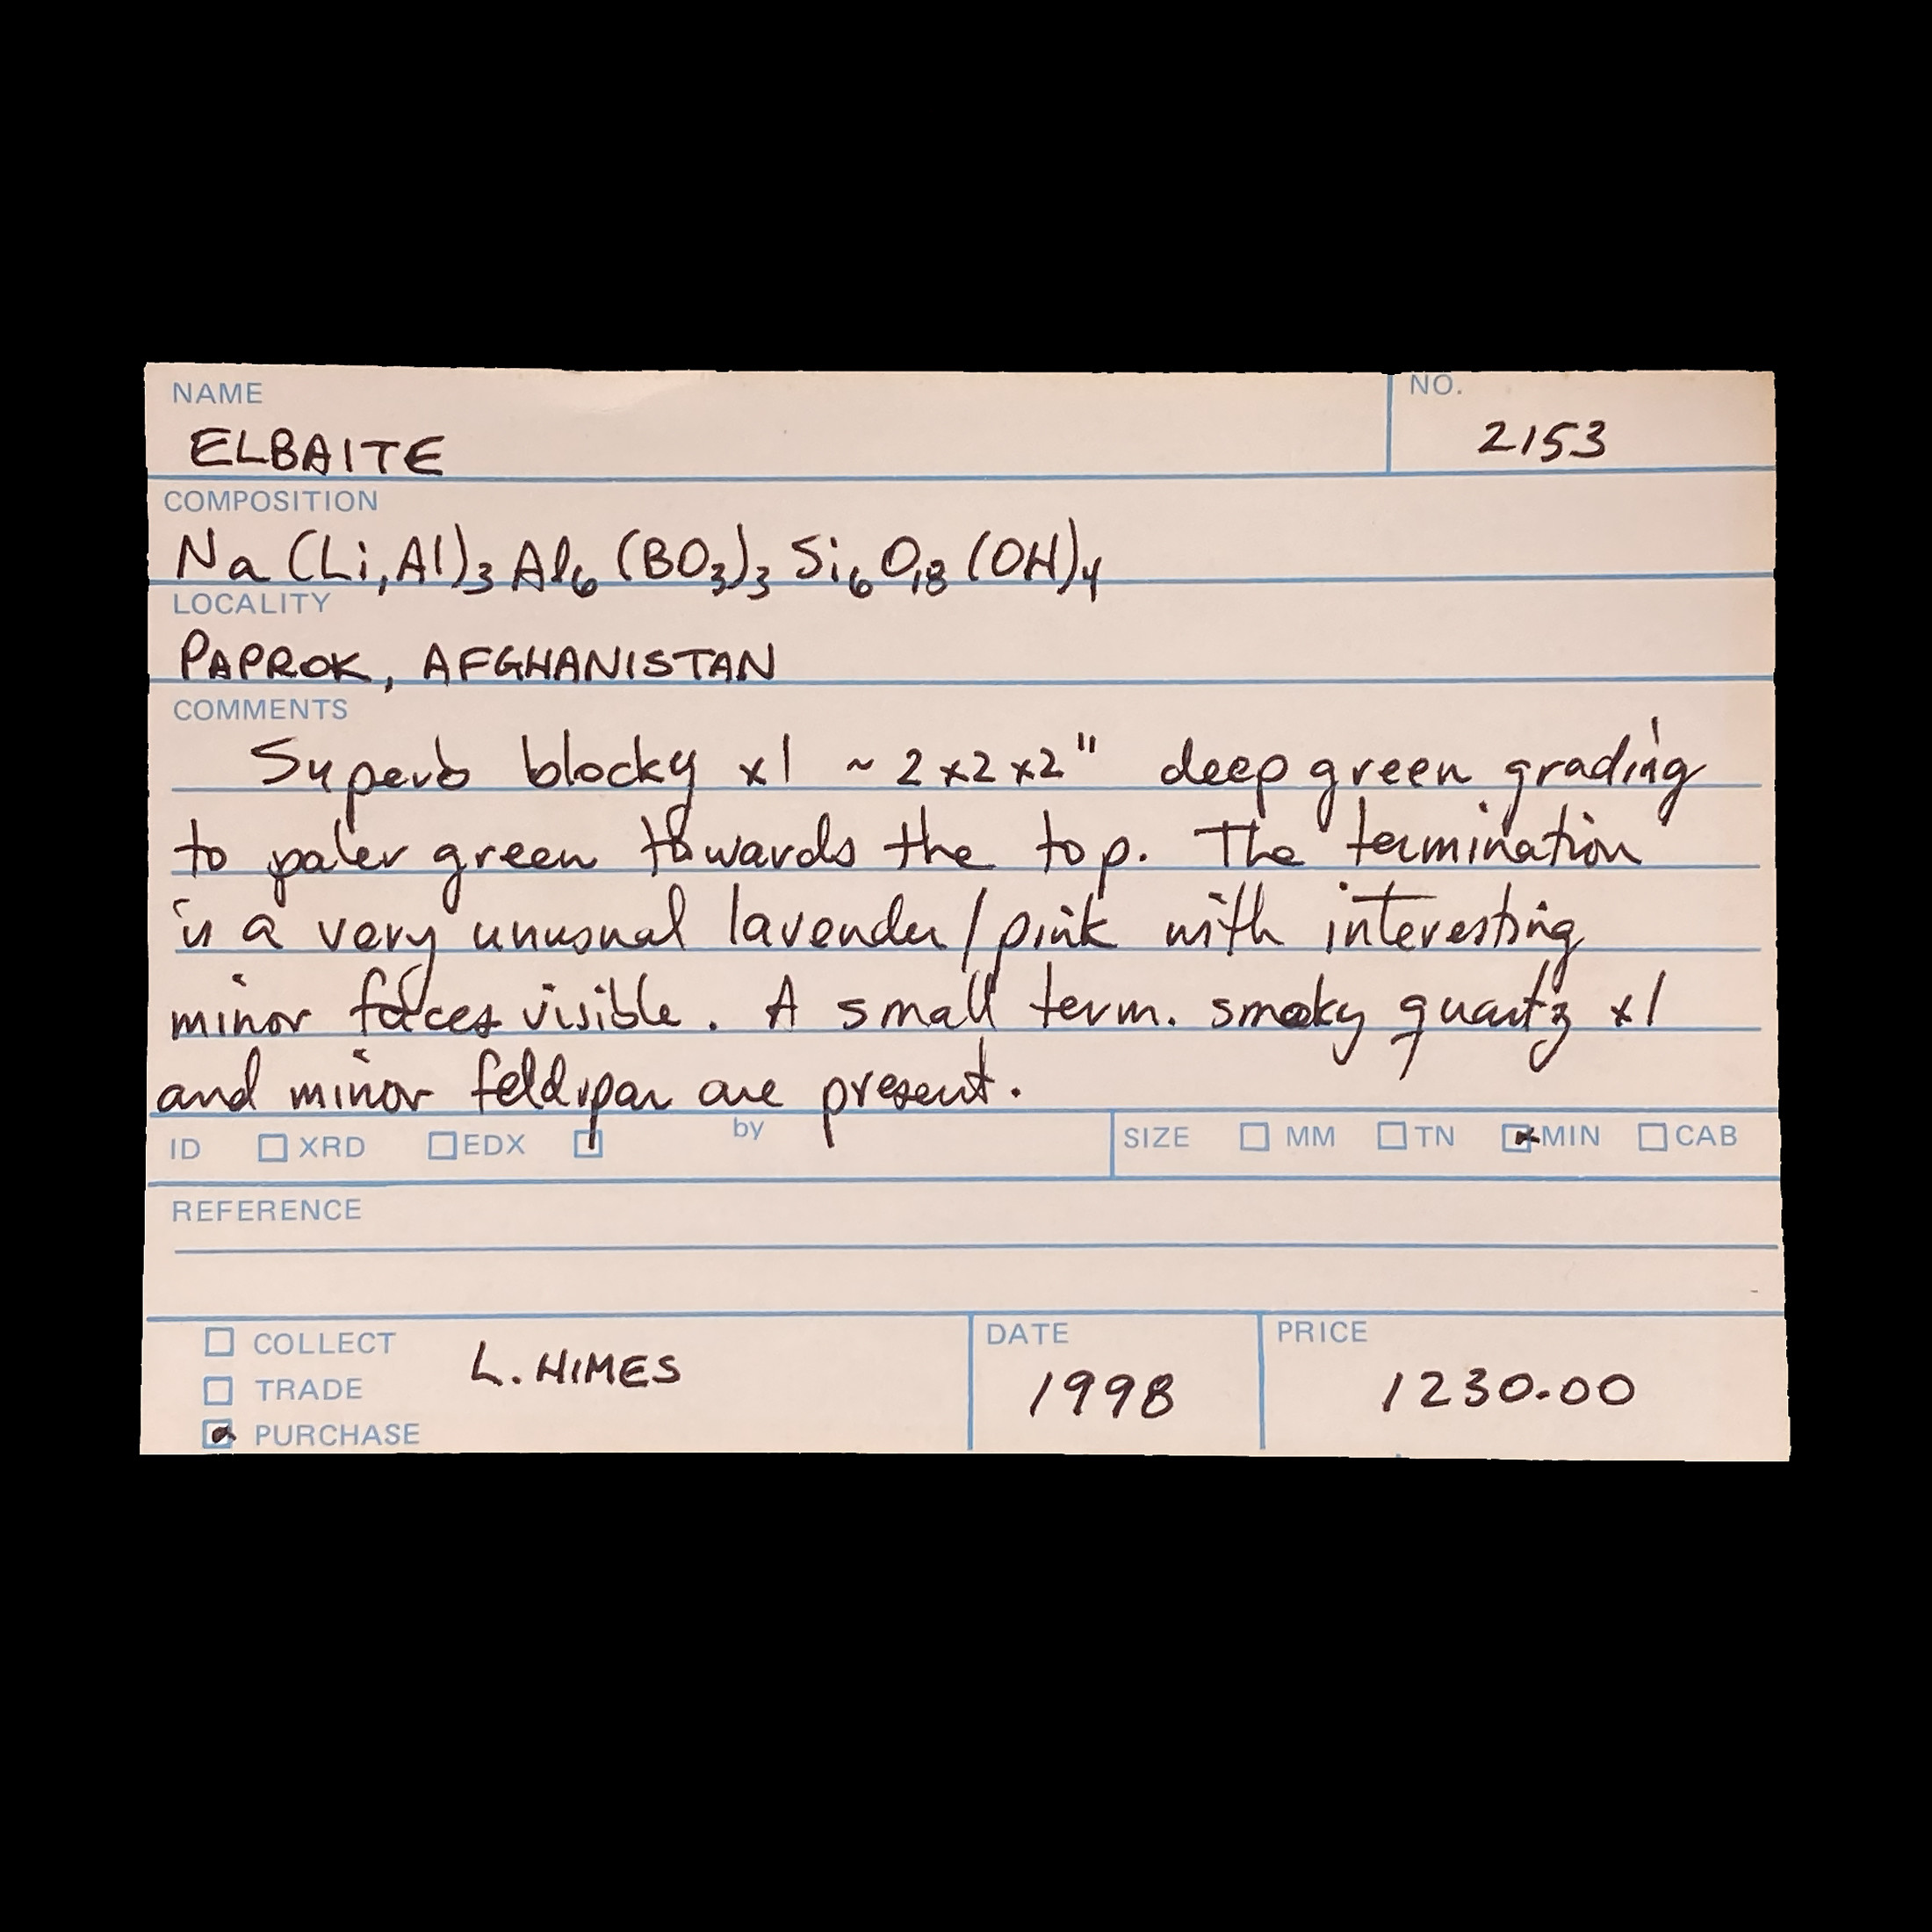 NAME
NO.
ELBAITE
2153
COMPOSITION
Na(Li,Al)₃Al₆(BO₃)₃Si₆O₁₈(OH)₄
LOCALITY
PAPROK, AFGHANISTAN
COMMENTS
Superb blocky xl ~ 2x2x2" deep green grading
to paler green towards the top. The termination
is a very unusual lavender/pink with interesting
minor faces visible. A small term. smoky quartz xl
and minor feldspar are present.
ID XRD EDX by SIZE MM TN MIN CAB
REFERENCE
COLLECT
TRADE
PURCHASE
L. HIMES
DATE
1998
PRICE
1230.00